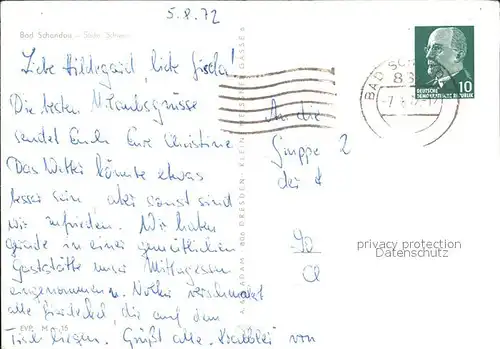 5.8.72
Bad Schandau - Sächs. Schweiz
Liebe Hildegard, liebe Gisela!
Die besten Urlaubsgrüsse
sendet Euch Eure Christine
Das Wetter könnte etwas
besser sein, aber sonst sind
wir zufrieden. Wir haben
gerade in einer gemütlichen
Gaststätte unser Mittagessen
eingenommen. Notker verschmaust
alle Bierdeckel, die auf dem
Tisch liegen. Grüßt alle von
EVP M
DRESDEN KLEINE GASSE
BAD SCH
83
DEUTSCHE
DEMOKRATISCHE REPUBLIK
10
An die
Gruppe 2
der
40
privacy protection
Datenschutz